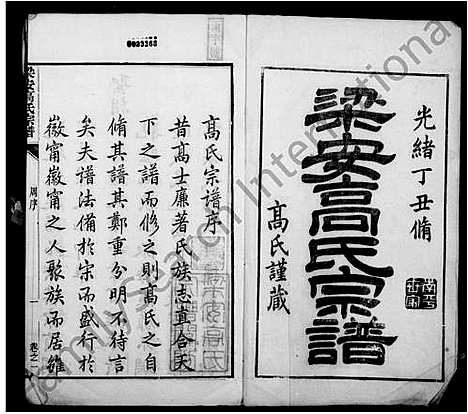 光緒丁丑脩
梁安高氏宗譜
高氏謹藏
高氏宗譜序
昔高士廉著氏族志直合天
下之譜而修之則高氏之自
脩其譜其鄭重分明不待言
矣夫譜法備於宋而盛行於
徽甯徽甯之人聚族而居雖
梁安高氏宗譜
周序
一
卷之一
0023268
FamilySearch International